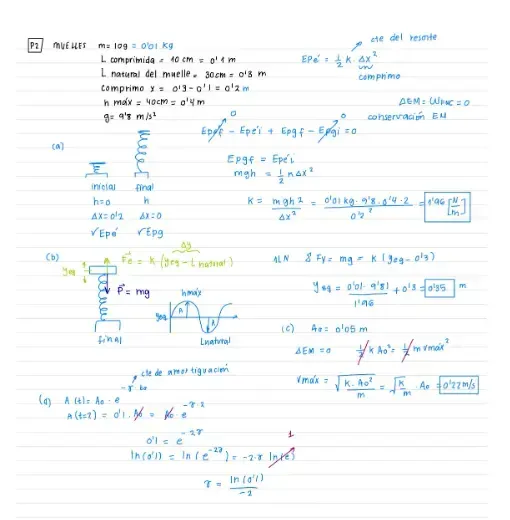 P2 MUELLES m = 10g = 0'01 kg
L comprimida = 10cm = 0'1 m
L natural del muelle = 30cm = 0'3 m
Comprimo x = 0'3 - 0'1 = 0'2 m
h máx = 40cm = 0'4 m
g = 9'8 m/s²
cte del resorte
EPe = 1/2 k · Δx²
comprimo
ΔEM = W FNC = 0
conservación EM
0 0
Epef - Epei + Epgf - Epgi = 0
Epgf = Epei
mgh = 1/2 k Δx²
K = mgh2 / Δx² = 0'01 kg · 9'8 · 0'4 · 2 / 0'2² = 1'96 [N/m]
(a)
inicial final
h=0 h
Δx=0'2 Δx=0
√Epe √Epg
(b)
Δy
Fe = k · (yeq - L natural)
yeq
P = mg
final
hmáx
yeq
A
A
Lnatural
1LN Σ Fy = mg = k (yeq - 0'3)
yeq = 0'01 · 9'81 / 1'96 + 0'3 = 0'35 m
(c) A₀ = 0'05 m
ΔEM = 0 1/2 k A₀² = 1/2 m vmáx²
vmáx = √(k · A₀² / m) = √(k / m) · A₀ = 0'77 m/s
cte de amortiguación
(d) A(t) = A₀ · e^(-γ · t)
A(t=2) = 0'1 · A₀ = A₀ · e^(-γ · 2)
0'1 = e^(-2γ)
1
ln(0'1) = ln(e^(-2γ)) = -2 · γ ln(e)
γ = ln(0'1) / -2